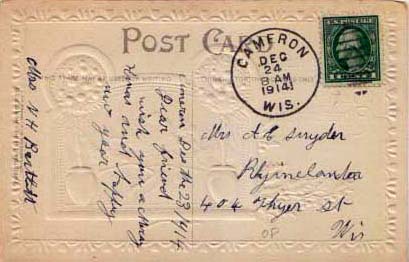 POST CARD
CAMERON
DEC
24
8 AM
1914
WIS.
Cameron Dec the 23/1914
Dear friend
wish you a Mery
Xmas and happy
new year
Mrs N H Bartlett
Mrs A E Snyder
Rhyinelander
404 Thyer st
Wis